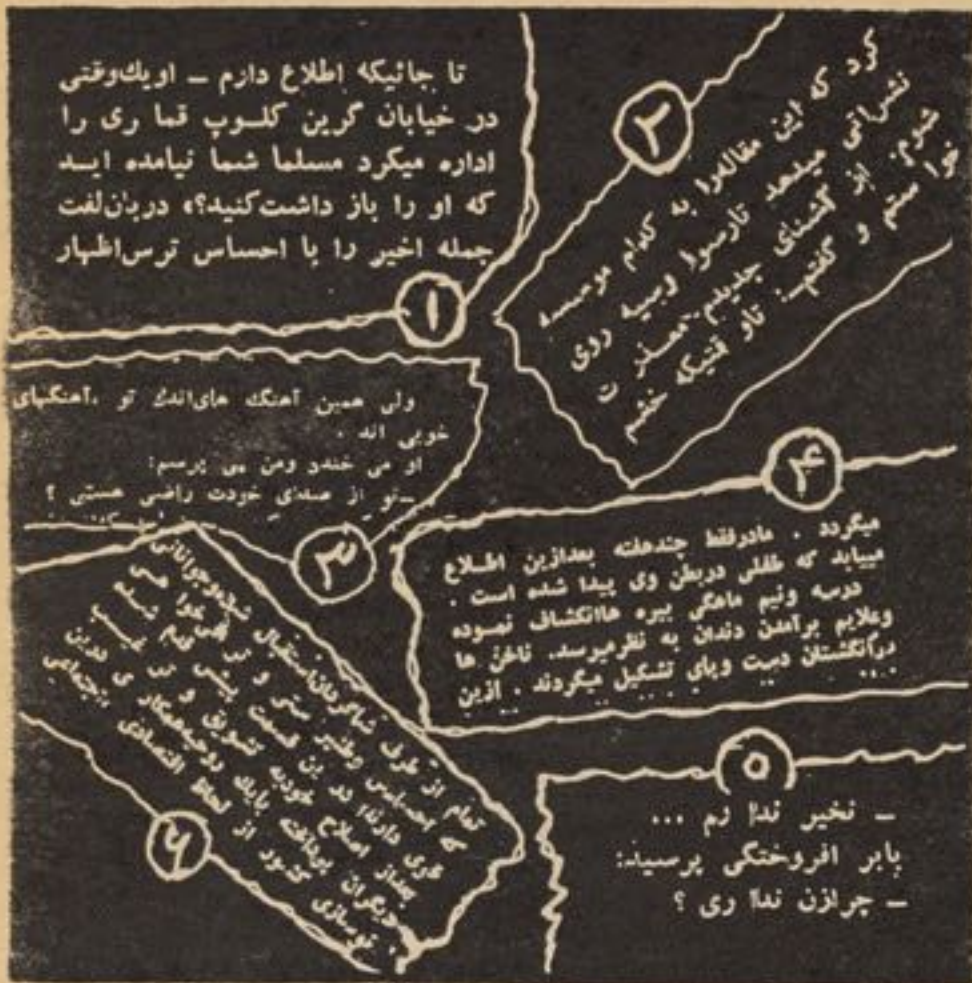 تا جائیکه اطلاع دارم – اویك‌وقتی
در خیابان گرین کلوپ قما ری را
اداره میکرد مسلما شما نیامده ایـد
که او را باز داشت‌کنید؟» دربان‌لفت
جمله اخیر را با احساس ترس‌اظهار
۱
کرد که این مقاله‌را به کدام موسسه
نشراتی میدهد تارسوا وسیه روی
شوم. از آشنای جدیدم معذر ت
خوا ستم و گفتم: تاو قتیکه خشم
۲
ولی همین آهنگ های‌اندك تو ،آهنگهای
خوبی اند .
او می خندد ومن می پرسم:
–تو از صدای خودت راضی هستی ؟
۳
میگردد . مادرفقط چندهفته بعدازین اطـلاع
مییابد که طفلی دربطن وی پیدا شده است .
درسه ونیم ماهگی بیره هاانکشاف نموده
وعلایم برآمدن دندان به نظرمیرسد. ناخن ها
درآنگشتان دست وپای تشکیل میگردند . ازین
۴
– نخیر ندا رم ...
بابر افروختگی پرسید:
– چرازن ندا ری ؟
۵
تمام از طرف شاگردان‌استقبال شده‌وجوانانی
که احساس وطنپر ستی و
قوی دارند در این قسمت پیش قدم شده
بعداز اصلاح خودبه تشویق و تر غیب
دیگران پرداخته بایك روحیه‌همکار ی درین
نوسازی کشور از لحاظ اقتصادی ،اجتماعی
۶